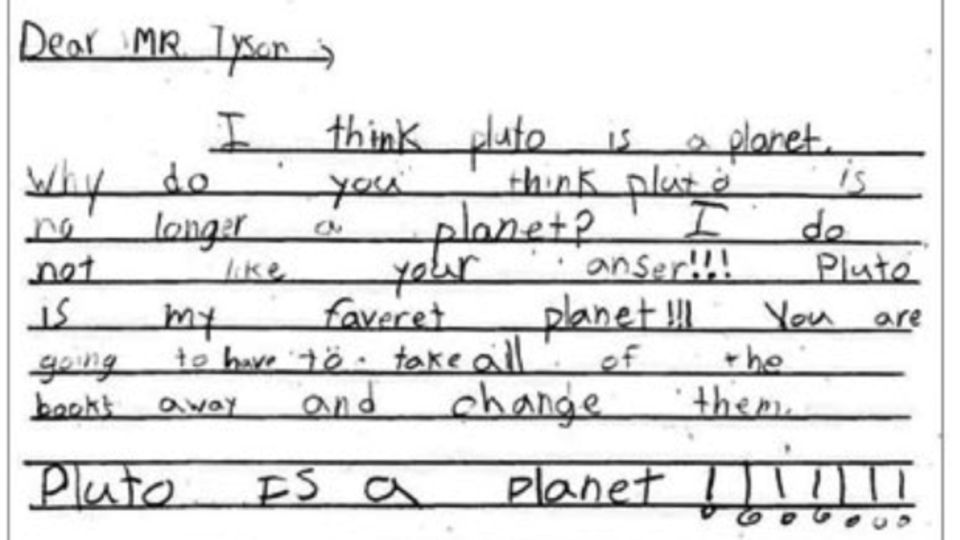 Dear MR. Tyson,
I think pluto is a planet.
Why do you think pluto is
no longer a planet? I do
not like your anser!!! Pluto
is my faveret planet!!! You are
going to have to take all of the
books away and change them.
Pluto IS a planet !!!!!!!